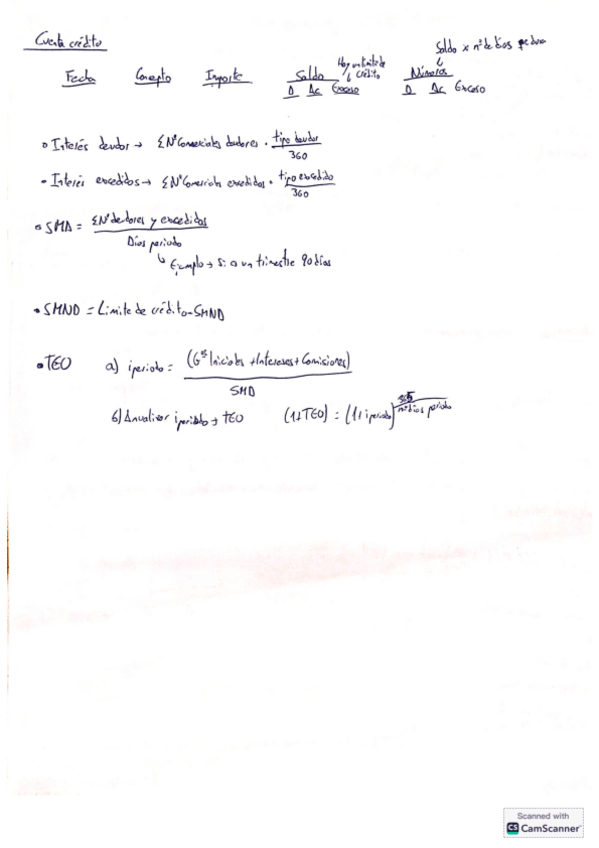 Cuenta crédito
Saldo x nº de días
Hay un límite de crédito
Fecha Concepto Importe Saldo Números
D Ac Exceso D Ac Exceso
Interés deudor → ΣNº Comerciales deudores · tipo deudor / 360
Interés excedidos → ΣNº Comerciales excedidos · tipo excedido / 360
SMD = ΣNº deudores y excedidos / Días periodo
Ejemplo → Si a un trimestre 90 días
SMND = Límite de crédito - SMND
TEO a) i periodo = (Gªˢ Iniciales + Intereses + Comisiones) / SMD
b) Anualizar i periodo → TEO (1+TEO) = (1+i periodo) 365 / nº días periodo
Scanned with
CS CamScanner